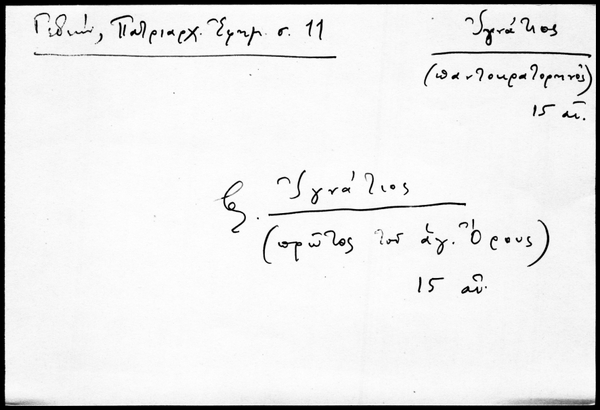 Γεδεών, Πατριαρχ. Ἐφημ. σ. 11
Ἰγνάτιος
(παντοκρατορηνός)
15 αἰ.
Ἰγνάτιος
(πρῶτος τοῦ ἁγ. Ὄρους)
15 αἰ.